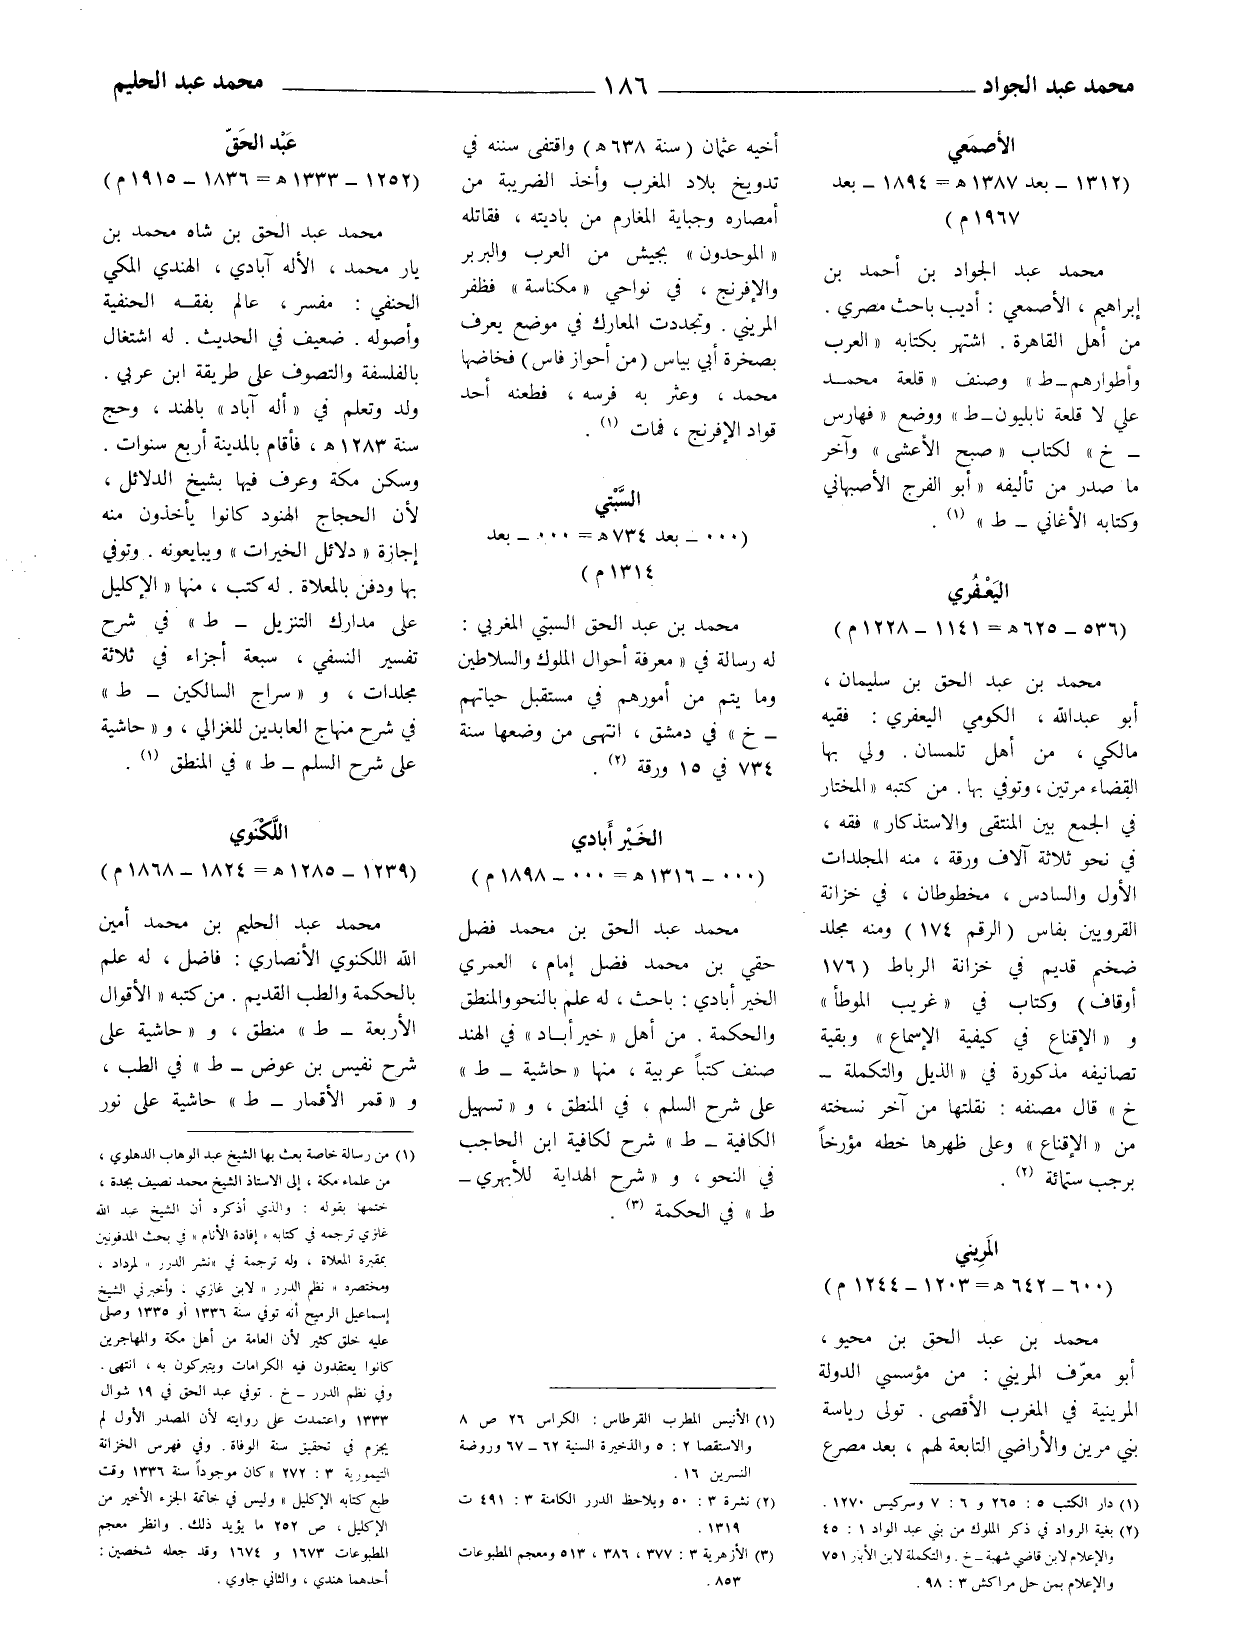 محمد عبد الجواد ــــــــ ١٨٦ ــــــــ محمد عبد الحليم
الأصمَعي
(١٣١٢ ــ بعد ١٣٨٧ ه = ١٨٩٤ ــ بعد
١٩٦٧ م)
محمد عبد الجواد بن أحمد بن
إبراهيم ، الأصمعي : أديب باحث مصري .
من أهل القاهرة . اشتهر بكتابه « العرب
وأطوارهم ــ ط » وصنف « قلعة محمد
علي لا قلعة نابليون ــ ط » ووضع « فهارس
ــ خ » لكتاب « صبح الأعشى » وآخر
ما صدر من تأليفه « أبو الفرج الأصبهاني
وكتابه الأغاني ــ ط » (١) .
اليَعْفُري
(٥٣٦ ــ ٦٢٥ ه = ١١٤١ ــ ١٢٢٨ م)
محمد بن عبد الحق بن سليمان ،
أبو عبدالله ، الكومي اليعفري : فقيه
مالكي ، من أهل تلمسان . ولي بها
القضاء مرتين ، وتوفي بها . من كتبه « المختار
في الجمع بين المنتقى والاستذكار » فقه ،
في نحو ثلاثة آلاف ورقة ، منه المجلدات
الأول والسادس ، مخطوطان ، في خزانة
القرويين بفاس (الرقم ١٧٤ ) ومنه مجلد
ضخم قديم في خزانة الرباط (١٧٦
أوقاف) وكتاب في « غريب الموطأ »
و « الإقناع في كيفية الإسماع » وبقية
تصانيفه مذكورة في « الذيل والتكملة ــ
خ » قال مصنفه : نقلتها من آخر نسخته
من « الإقناع » وعلى ظهرها خطه مؤرخاً
برجب ستمائة (٢) .
المَريني
(٦٠٠ ــ ٦٤٢ ه = ١٢٠٣ ــ ١٢٤٤ م)
محمد بن عبد الحق بن محيو ،
أبو معرّف المريني : من مؤسسي الدولة
المرينية في المغرب الأقصى . تولى رياسة
بني مرين والأراضي التابعة لهم ، بعد مصرع
(١) دار الكتب ٥ : ٢٦٥ و ٦ : ٧ وسركيس ١٢٧٠ .
(٢) بغية الرواد في ذكر الملوك من بني عبد الواد ١ : ٤٥
والإعلام لابن قاضي شهبة ــ خ . والتكملة لابن الأبار ٧٥١
والإعلام بمن حل مراكش ٣ : ٩٨ .
أخيه عثمان (سنة ٦٣٨ ه) واقتفى سننه في
تدويخ بلاد المغرب وأخذ الضريبة من
أمصاره وجباية المغارم من باديته ، فقاتله
« الموحدون » بجيش من العرب والبربر
والإفرنج ، في نواحي « مكناسة » فظفر
المريني . وتجددت المعارك في موضع يعرف
بصخرة أبي بياس (من أحواز فاس) فخاضها
محمد ، وعثر به فرسه ، فطعنه أحد
قواد الإفرنج ، فمات (١) .
السَّبْتي
(٠٠٠ ــ بعد ٧٣٤ ه = ٠٠٠ ــ بعد
١٣١٤ م)
محمد بن عبد الحق السبتي المغربي :
له رسالة في « معرفة أحوال الملوك والسلاطين
وما يتم من أمورهم في مستقبل حياتهم
ــ خ » في دمشق ، انتهى من وضعها سنة
٧٣٤ في ١٥ ورقة (٢) .
الخَيْر أَبادي
(٠٠٠ ــ ١٣١٦ ه = ٠٠٠ ــ ١٨٩٨ م)
محمد عبد الحق بن محمد فضل
حقي بن محمد فضل إمام ، العمري
الخير أبادي : باحث ، له علم بالنحو والمنطق
والحكمة . من أهل « خير أباد » في الهند
صنف كتباً عربية ، منها « حاشية ــ ط »
على شرح السلم ، في المنطق ، و « تسهيل
الكافية ــ ط » شرح لكافية ابن الحاجب
في النحو ، و « شرح الهداية للأبهري ــ
ط » في الحكمة (٣) .
(١) الأنيس المطرب القرطاس : الكراس ٢٦ ص ٨
والاستقصا ٢ : ٥ والذخيرة السنية ٦٢ ــ ٦٧ وروضة
النسرين ١٦ .
(٢) نشرة ٣ : ٥٠ ويلاحظ الدرر الكامنة ٣ : ٤٩١ ت
١٣١٩ .
(٣) الأزهرية ٣ : ٣٧٧ ، ٣٨٦ ، ٥١٣ ومعجم المطبوعات
٨٥٣ .
عَبْد الحَقّ
(١٢٥٢ ــ ١٣٣٣ ه = ١٨٣٦ ــ ١٩١٥ م)
محمد عبد الحق بن شاه محمد بن
يار محمد ، الأله آبادي ، الهندي المكي
الحنفي : مفسر ، عالم بفقه الحنفية
وأصوله . ضعيف في الحديث . له اشتغال
بالفلسفة والتصوف على طريقة ابن عربي .
ولد وتعلم في « أله آباد » بالهند ، وحج
سنة ١٢٨٣ ه ، فأقام بالمدينة أربع سنوات .
وسكن مكة وعرف فيها بشيخ الدلائل ،
لأن الحجاج الهنود كانوا يأخذون منه
إجازة « دلائل الخيرات » ويبايعونه . وتوفي
بها ودفن بالمعلاة . له كتب ، منها « الإكليل
على مدارك التنزيل ــ ط » في شرح
تفسير النسفي ، سبعة أجزاء في ثلاثة
مجلدات ، و « سراج السالكين ــ ط »
في شرح منهاج العابدين للغزالي ، و « حاشية
على شرح السلم ــ ط » في المنطق (١) .
اللَّكْنَوي
(١٢٣٩ ــ ١٢٨٥ ه = ١٨٢٤ ــ ١٨٦٨ م)
محمد عبد الحليم بن محمد أمين
الله اللكنوي الأنصاري : فاضل ، له علم
بالحكمة والطب القديم . من كتبه « الأقوال
الأربعة ــ ط » منطق ، و « حاشية على
شرح نفيس بن عوض ــ ط » في الطب ،
و « قمر الأقمار ــ ط » حاشية على نور
(١) من رسالة خاصة بعث بها الشيخ عبد الوهاب الدهلوي ،
من علماء مكة ، إلى الاستاذ الشيخ محمد نصيف بجدة ،
ختمها بقوله : والذي أذكره أن الشيخ عبد الله
غازي ترجمه في كتابه « إفادة الأنام » في بحث المدفونين
بمقبرة المعلاة ، وله ترجمة في « نشر الدرر » لمرداد ،
ومختصره « نظم الدرر » لابن غازي . وأخبرني الشيخ
إسماعيل الرميح أنه توفي سنة ١٣٣٦ أو ١٣٣٥ وصلى
عليه خلق كثير لأن العامة من أهل مكة والمهاجرين
كانوا يعتقدون فيه الكرامات ويتبركون به ، انتهى .
وفي نظم الدرر ــ خ . توفي عبد الحق في ١٩ شوال
١٣٣٣ واعتمدت على روايته لأن المصدر الأول لم
يجزم في تحقيق سنة الوفاة . وفي فهرس الخزانة
التيمورية ٣ : ٢٧٢ « كان موجوداً سنة ١٣٣٦ وقت
طبع كتابه الإكليل » وليس في خاتمة الجزء الأخير من
الإكليل ، ص ٢٥٢ ما يؤيد ذلك . وانظر معجم
المطبوعات ١٦٧٣ و ١٦٧٤ وقد جعله شخصين :
أحدهما هندي ، والثاني جاوي .